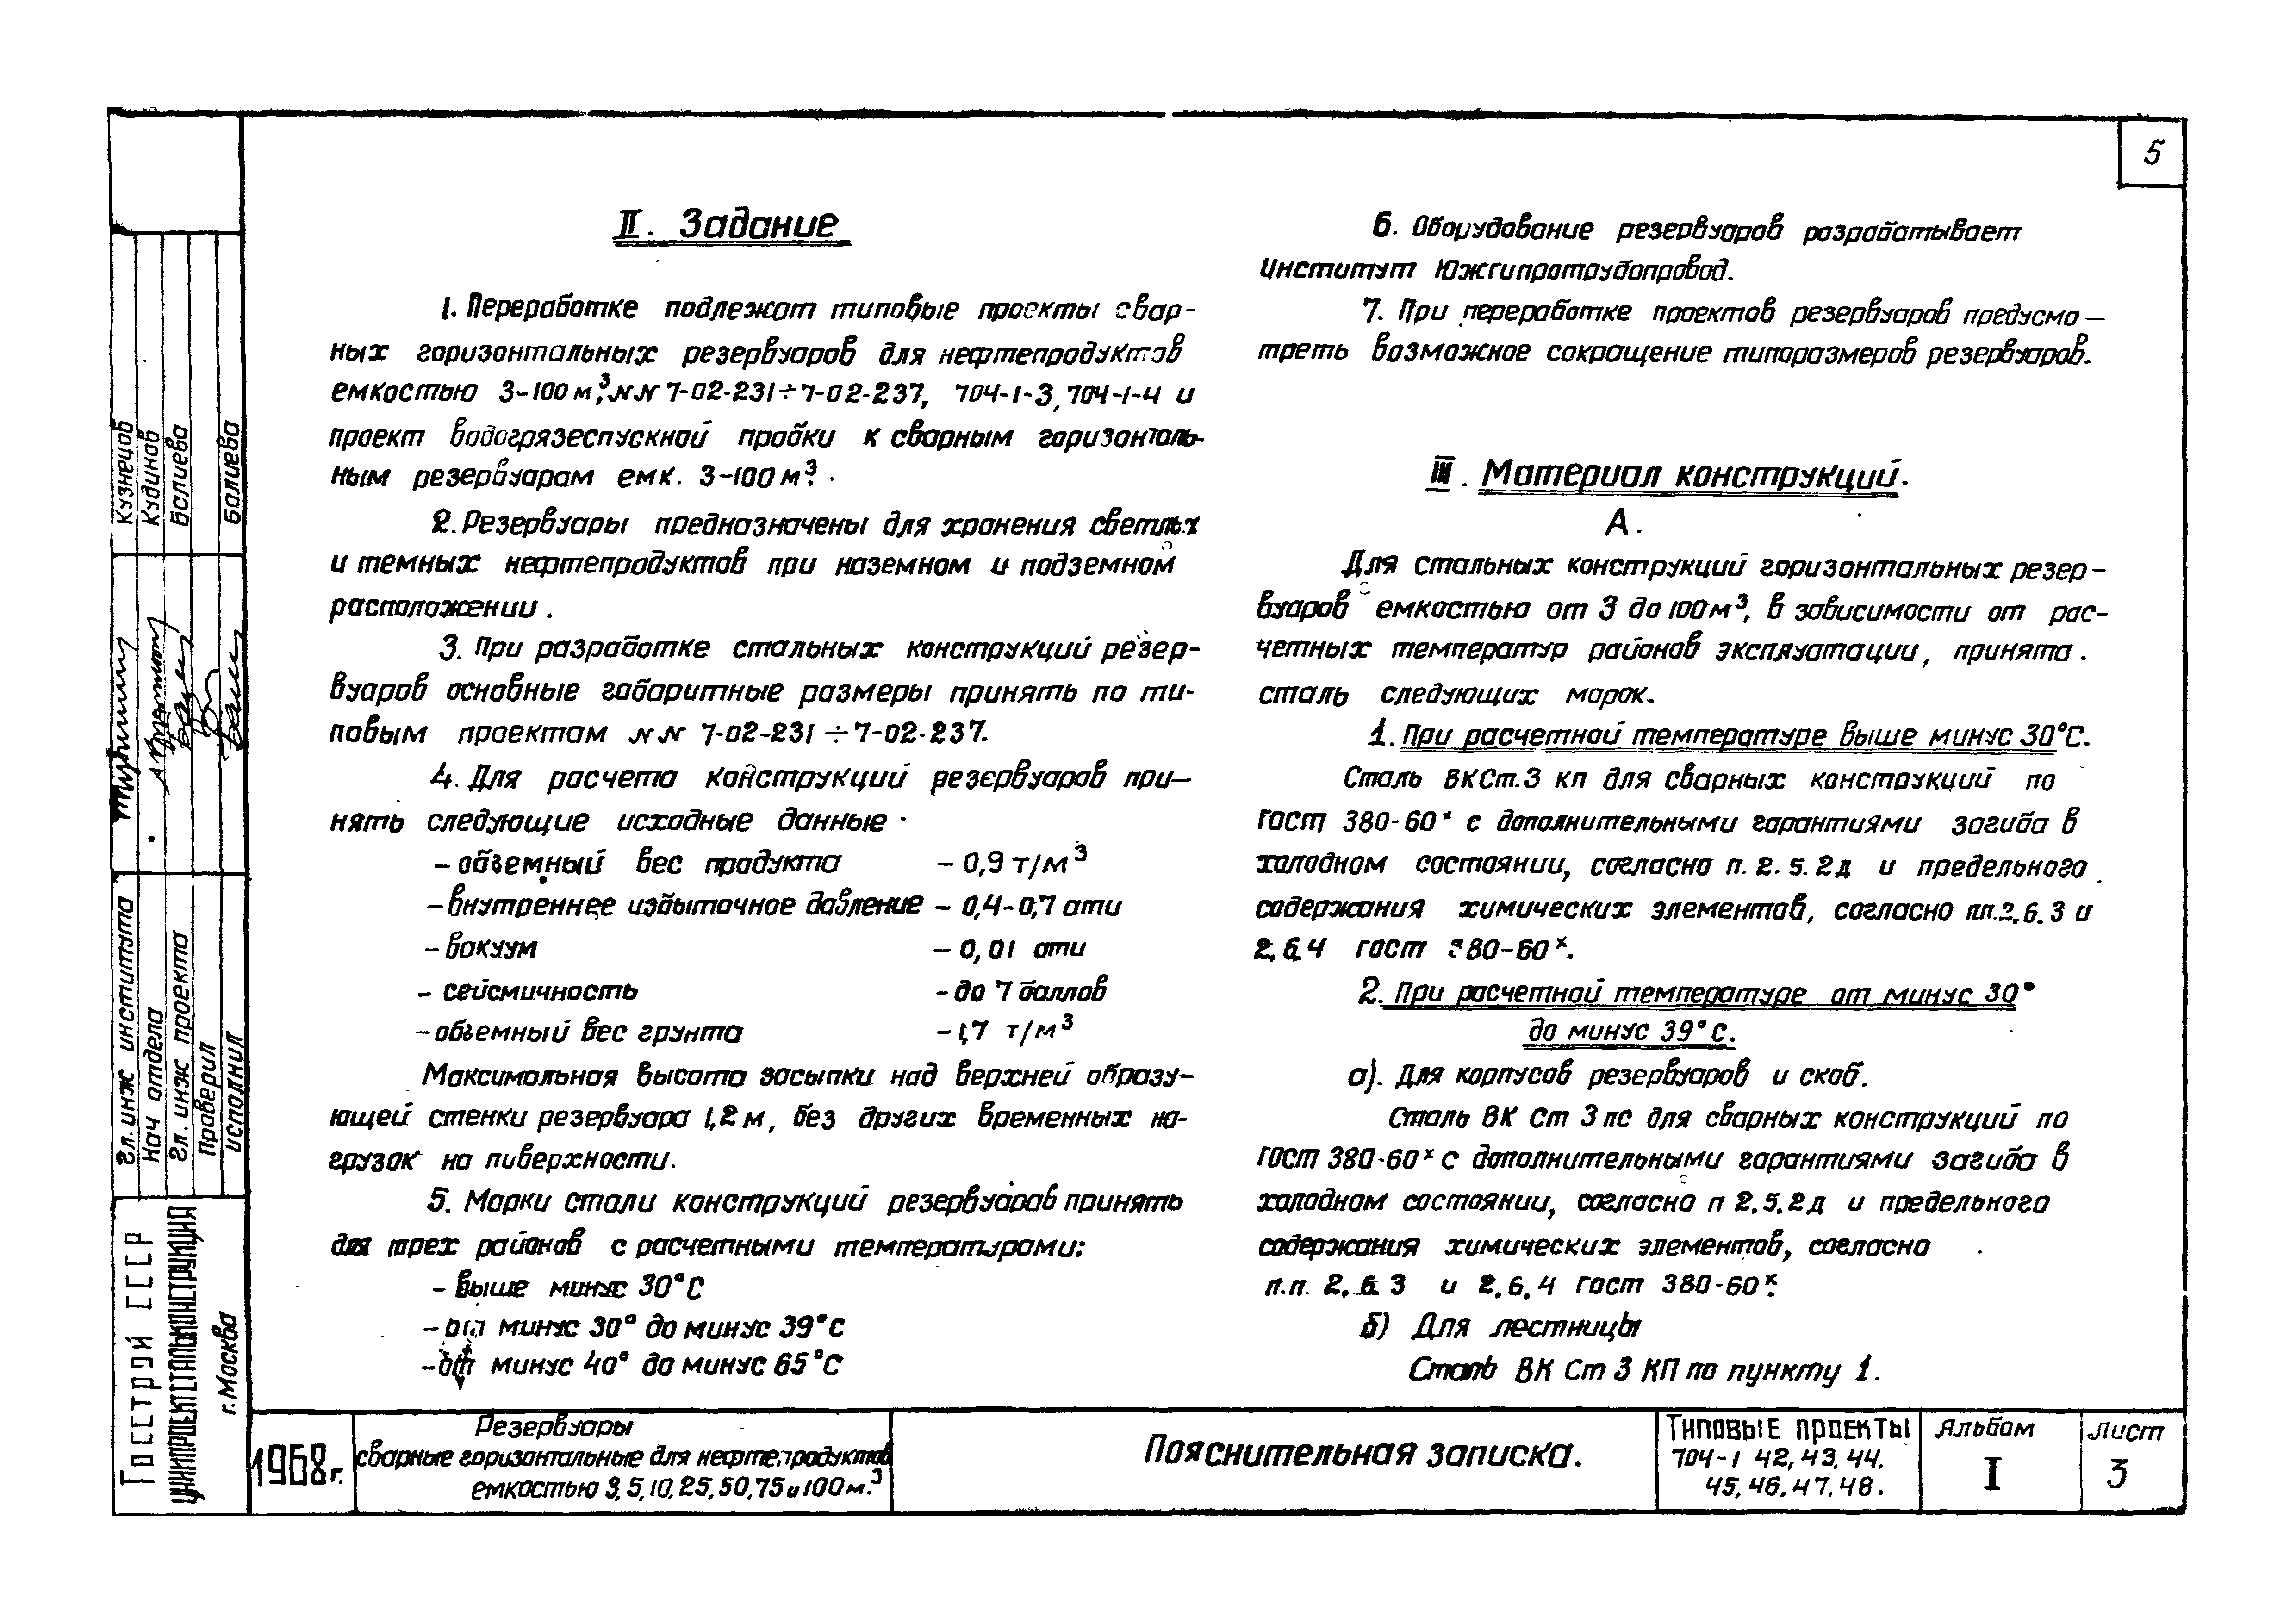 5
II. Задание
1. Переработке подлежат типовые проекты свар-
ных горизонтальных резервуаров для нефтепродуктов
емкостью 3-100 м³, NN 7-02-231÷7-02-237, 704-1-3, 704-1-4 и
проект водогрязеспускной пробки к сварным горизонталь-
ным резервуарам емк. 3-100 м³.
2. Резервуары предназначены для хранения светлых
и темных нефтепродуктов при наземном и подземном
расположении.
3. При разработке стальных конструкций резер-
вуаров основные габаритные размеры принять по ти-
повым проектам NN 7-02-231÷7-02-237.
4. Для расчета конструкций резервуаров при-
нять следующие исходные данные.
- объемный вес продукта - 0,9 т/м³
- внутреннее избыточное давление - 0,4-0,7 ати
- вакуум - 0,01 ати
- сейсмичность - до 7 баллов
- объемный вес грунта - 1,7 т/м³
Максимальная высота засыпки над верхней образу-
ющей стенки резервуара 1,2 м, без других временных на-
грузок на поверхности.
5. Марки стали конструкций резервуаров принять
для трех районов с расчетными температурами:
- выше минус 30°С
- от минус 30° до минус 39°С
- от минус 40° до минус 65°С
6. Оборудование резервуаров разрабатывает
институт Южгипротрубопровод.
7. При переработке проектов резервуаров предусмо-
треть возможное сокращение типоразмеров резервуаров.
III. Материал конструкций.
А.
Для стальных конструкций горизонтальных резер-
вуаров емкостью от 3 до 100 м³, в зависимости от рас-
четных температур районов эксплуатации, принята
сталь следующих марок.
1. При расчетной температуре выше минус 30°С.
Сталь ВКСт.3 кп для сварных конструкций по
ГОСТ 380-60ˣ с дополнительными гарантиями загиба в
холодном состоянии, согласно п. 2.5.2д и предельного
содержания химических элементов, согласно пп.2.6.3 и
2.6.4 ГОСТ 380-60ˣ.
2. При расчетной температуре от минус 30°
до минус 39°С.
а). Для корпусов резервуаров и скоб.
Сталь ВК Ст 3 пс для сварных конструкций по
ГОСТ 380-60ˣ с дополнительными гарантиями загиба в
холодном состоянии, согласно п 2.5.2д и предельного
содержания химических элементов, согласно
п.п. 2.6.3 и 2.6.4 ГОСТ 380-60ˣ.
б) Для лестницы
Сталь ВК Ст 3 КП по пункту 1.
гл. инж института Кузнецов
Нач отдела Кудинов
гл. инж проекта Баслиева
Проверил
исполнил Балиева
Госстрой СССР
ЦНИИПРОЕКТСТАЛЬКОНСТРУКЦИЯ
г. Москва
1968 г.
Резервуары
сварные горизонтальные для нефтепродуктов
емкостью 3, 5, 10, 25, 50, 75 и 100 м.³
Пояснительная записка.
Типовые проекты
704-1 42, 43, 44,
45, 46, 47, 48.
Альбом
I
Лист
3